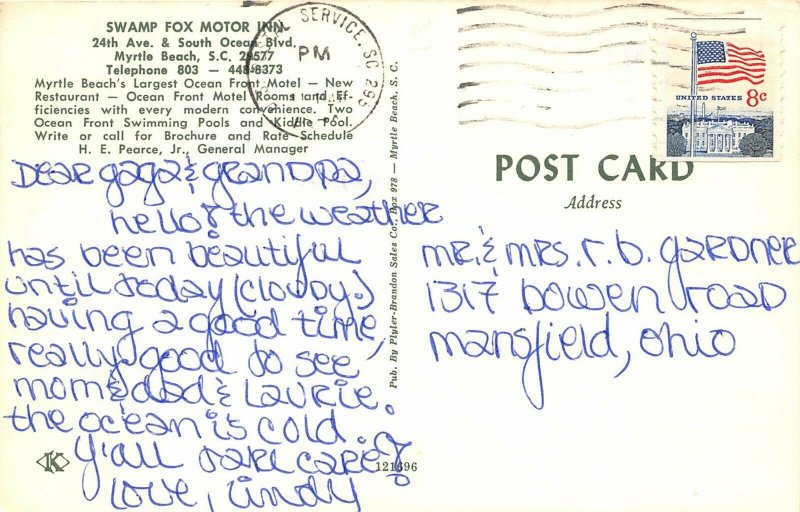 SWAMP FOX MOTOR INN
24th Ave. & South Ocean Blvd.
Myrtle Beach, S.C. 29577
Telephone 803 — 448-8373
Myrtle Beach's Largest Ocean Front Motel — New
Restaurant — Ocean Front Motel Rooms and Ef-
ficiencies with every modern convenience. Two
Ocean Front Swimming Pools and Kiddie Pool.
Write or call for Brochure and Rate Schedule
H. E. Pearce, Jr., General Manager
Dear gaga & grandpa,
hello! the weather
has been beautiful
until today (cloudy.)
having a good time,
really good to see
mom & dad & Laurie.
the ocean is cold.
y'all take care!
love, Cindy
121696
K
Pub. By Plyler-Brandon Sales Co., Box 978 — Myrtle Beach, S. C.
SERVICE, SC 295
PM
UNITED STATES 8c
POST CARD
Address
mr. & mrs. r. b. gardner
1317 bowen road
mansfield, ohio